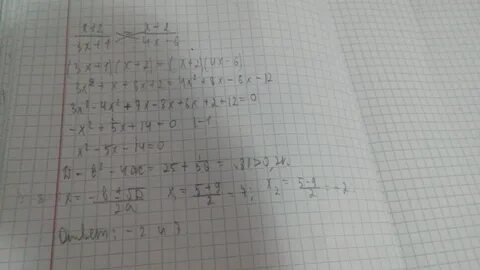 x+2/3x+1 = x+2/4x-6
(3x+1)(x+2)=(x+2)(4x-6)
3x²+x+6x+2=4x²+8x-6x-12
3x²-4x²+7x-8x+6x+2+12=0
-x²+5x+14=0 |-1
x²-5x-14=0
D=b²-4ac=25+56=81>0, 2к.
x=-b±√D/2a x₁=5+9/2=7; x₂=5-9/2=-2
Ответ: -2 и 7